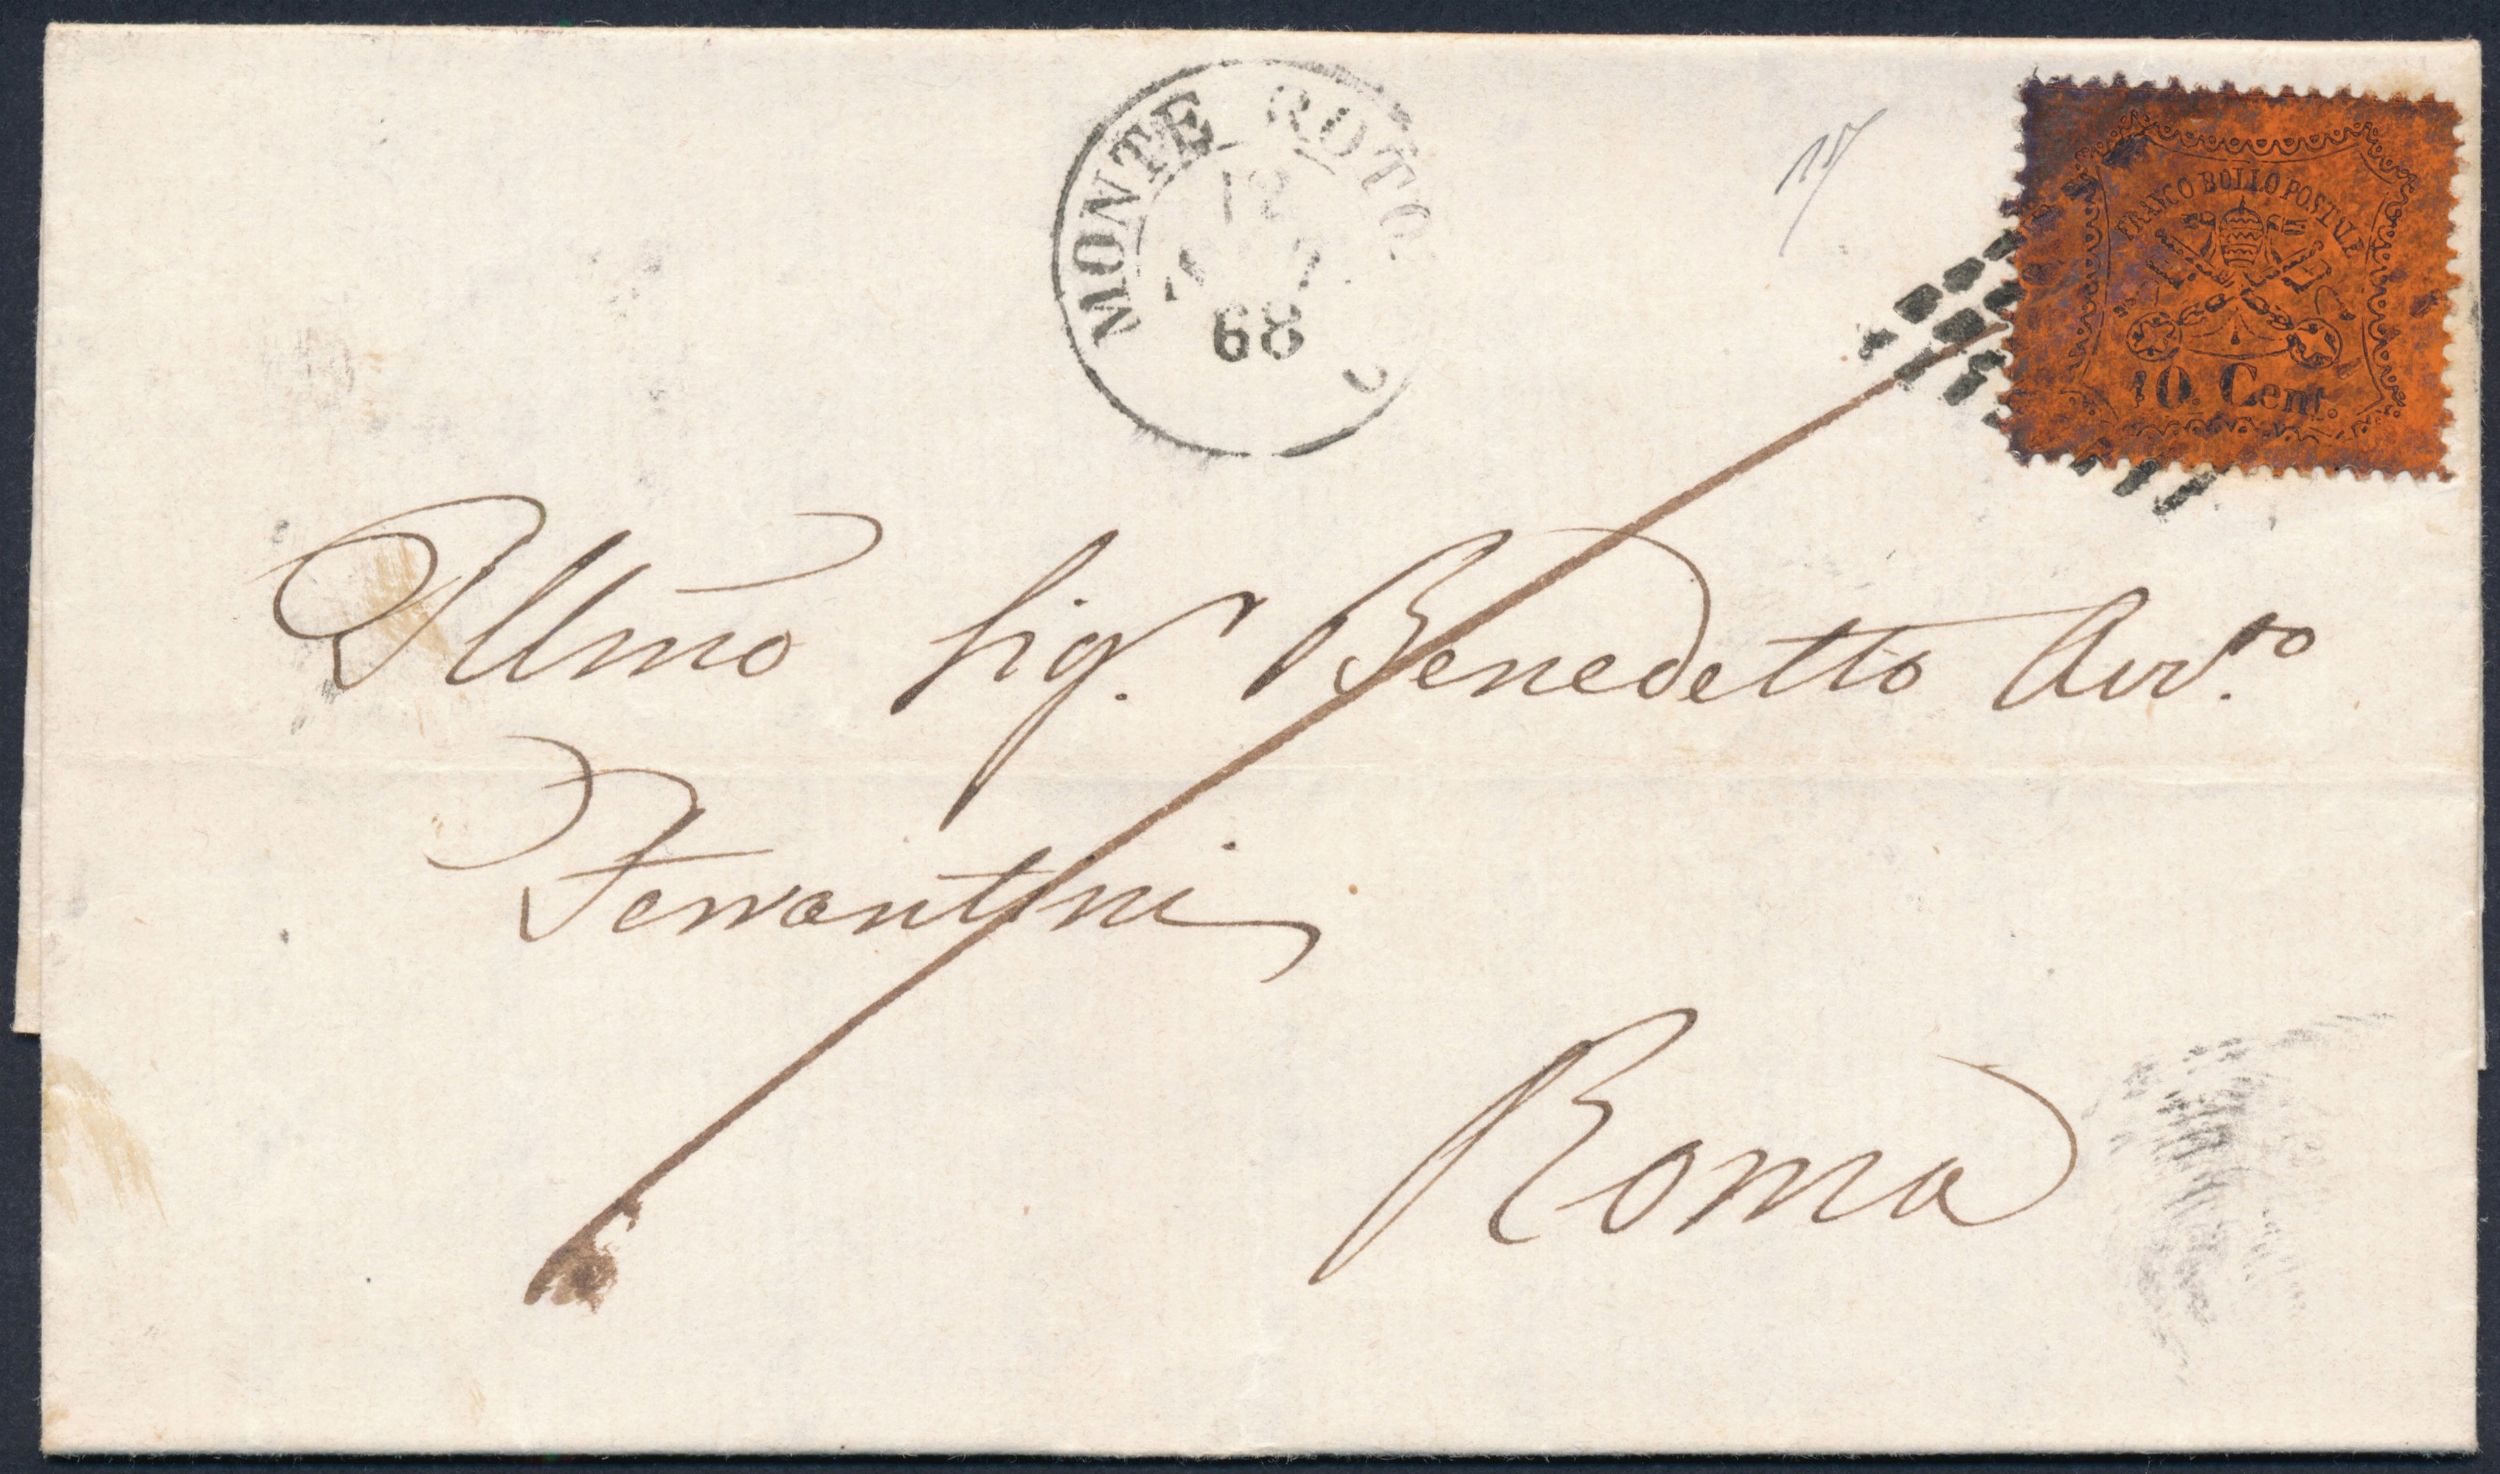 MONTE ROTO
12
68
FRANCO BOLLO POSTALE
10. Cent.
Illmo Sig.r Benedetto Avv.to
Ferrantini
Roma